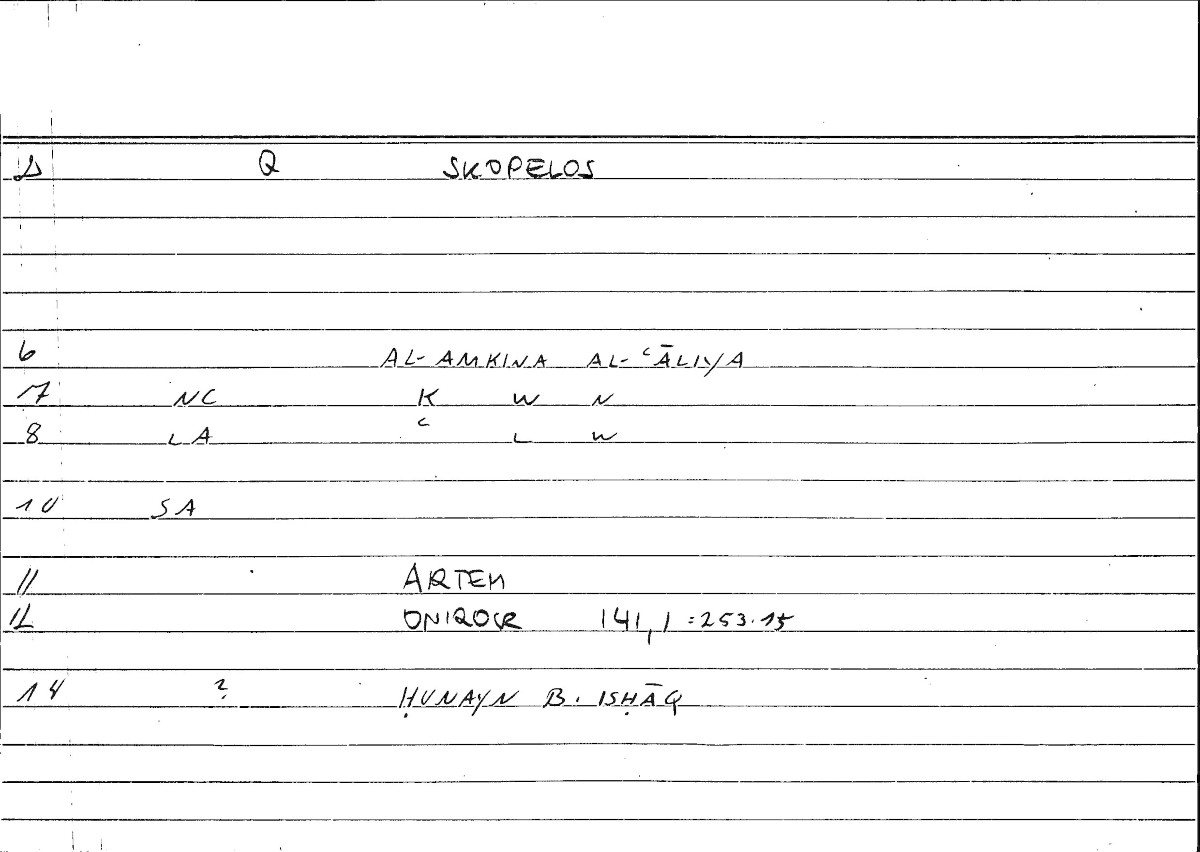 1 Q SKOPELOS
6 AL-AMKINA AL-ʿĀLIYA
7 NC K W N
8 LA ʿ L W
10 SA
11 ARTEM
12 ONIROCR 141,1 = 253.15
14 ? ḤUNAYN B. ISḤĀQ